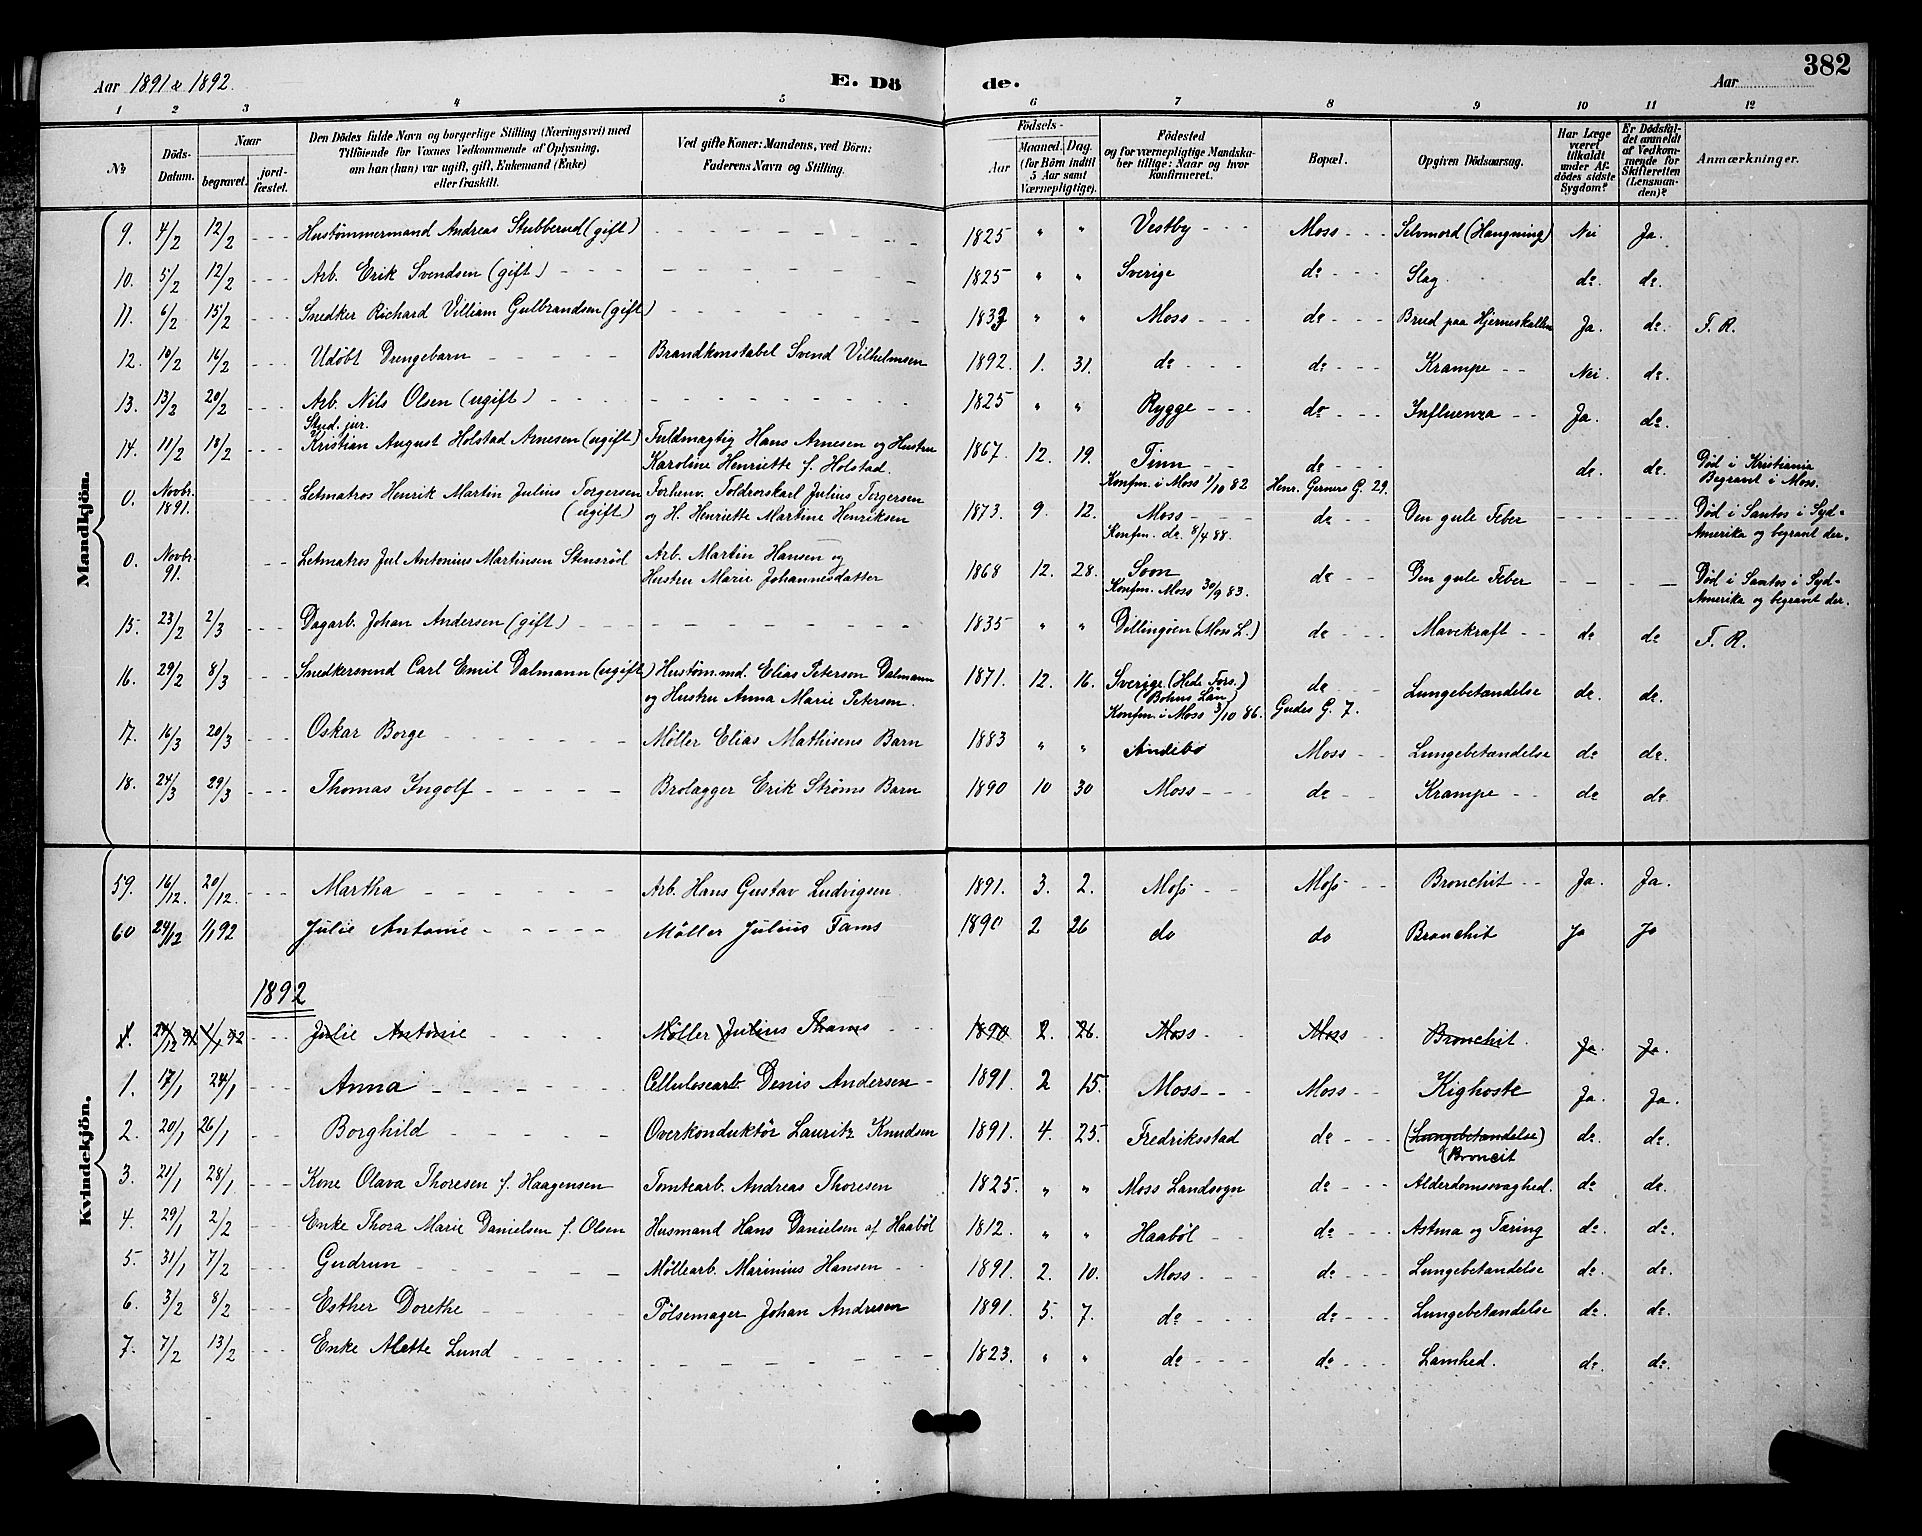 Aar 1891 & 1892. E. Dö de. Aar 382
1 2 3 4 5 6 7 8 9 10 11 12
№ Döds-Datum. Naar begravet. jord-fæstet. Den Dödes fulde Navn og borgerlige Stilling (Næringsvei) med Tilföiende for Voxnes Vedkommende af Oplysning, om han (hun) var ugift, gift, Enkemand (Enke) eller fraskilt. Ved gifte Koner: Mandens, ved Börn: Faderens Navn og Stilling. Födsels- Aar Maaned. Dag. (for Börn indtil 5 Aar samt Værnepligtige). Födested og for værnepligtige Mandska-ber tillige: Naar og hvor Konfirmeret. Bopæl. Opgiven Dödsaarsag. Har Læge været tilkaldt under Af-dödes sidste Sygdom? Er Dödsfal-det anmeldt af Vedkom-mende for Skifteretten (Lensman-den)? Anmærkninger.
Mandkjön.
9. 4/2 12/2 - - - Hustømmermand Andreas Stubberud (gift) - - - 1825 " " Vestby - - - Moss - - - Selvmord (Hangning) Nei Ja.
10. 5/2 12/2 - - - Arb. Erik Svendsen (gift) - - - 1825 " " Sverige do - - - Slag. do. do.
11. 6/2 15/2 - - - Snedker Richard Villiam Gulbrandsen (gift) - - - 1832 " " Moss - - - do - - - Brud paa Hjerneskallen Ja. do. F. R.
12. 10/2 16/2 - - - Udøbt Drengebarn - - - Brandkonstabel Svend Vilhelmsen 1892. 1. 31. do - - - do - - - Krampe - - Nei. do.
13. 13/2 20/2 - - - Arb. Nils Olsen (ugift) - - - 1825 " " Rygge - - - do - - - Influenza - - Ja. do.
14. 11/2 18/2 - - - Stud. jur.
Kristian August Holstad Arnesen (ugift) Fuldmægtig Hans Arnesen og Hustru
Karoline Henriette f. Holstad. 1867. 12. 19. Tinn - - do - - - do. do. Død i Kristiania
Konfm. i Moss 1/10 82 Henr. Gerners G. 29. Begravet i Moss.
0. Novbr. 1891. - - - Letmatros Henrik Martin Julius Torgersen (ugift) Forhenv. Toldrorskarl Julius Torgersen
og H. Henriette Martine Henriksen 1873. 9. 12. Moss - - - do - - Den gule Feber - - - Død i Santos i Syd-
Konfm. do. 8/4 88. Amerika og begravet der.
0. Novbr. 91. - - - Letmatros Jul Antonius Martinsen Stensrød Arb. Martin Hansen og
Hustru Marie Johannesdatter 1868 12. 28. Soon do - - Den gule Feber - - - Død i Santos i Syd-
Konfm. Moss 30/9 83. Amerika og begravet der.
15. 23/2 2/3 - - - Dagarb. Johan Andersen (gift) - - - 1835 " " Dillingøen (Moss L.) do - - - Mavekræft - - do do F. R.
16. 29/2 8/3 - - - Snedkersvend Carl Emil Dalmann (ugift) Hustøm.md. Elias Peterson Dalmann
og Hustru Anna Marie Peterson. 1871. 12. 16. Sverige (Hede Fors.) do - - - Lungebetændelse do. do.
(Bohus Län)
Konfm. i Moss 3/10 86. Gudes G. 7.
17. 16/3 20/3 - - - Oskar Borge - - - Møller Elias Mathisens Barn 1883 " " Andebo Moss - - Lungebetændelse do do.
18. 24/3 29/3 - - - Thomas Ingolf - - - Brolægger Erik Strøms Barn 1890 10 30 Moss - - - do - - - Krampe - - do do.
Kvindekjön.
59. 16/12. 20/12. - - - Martha - - - Arb. Hans Gustav Ludvigsen 1891. 3. 2. Moss - - Moss - - Bronchit - - Ja. Ja.
60 24/12 1/1 92 Julie Antonie - - - Møller Julius Fams 1890 2 26 do do Bronchit Ja Ja
1892
1. 24/12 91 1/1 92 - - - Julie Antonie Møller Julius Thams - - - 1890 2. 26. Moss - - Moss - - Bronchit. Ja. Ja.
1. 17/1 24/1 - - - Anna - - - Cellulosearb Denis Andersen - 1891. 2 15. Moss - - Moss - - Kighoste Ja. Ja.
2. 20/1 26/1 - - - Borghild - - - Overkonduktör Lauritz Knudsen 1891. 4. 25. Fredriksstad do - - - (Lungebetændelse) do. do.
(Broncit
3. 21/1 28/1 - - - Kone Olava Thoresen f. Haagensen Tomtearb. Andreas Thoresen 1825. " " Moss Landsogn do - - - Alderdomssvaghed. do. do.
4. 29/1 2/2 - - - Enke Thora Marie Danielsen f. Olsen Husmand Hans Danielsen af Haabøl 1812. " " Haabøl - - do - - - Astma og Tæring do. do.
5. 31/1 7/2 - - - Gudrun - - - Møllearb. Marinius Hansen - - 1891. 2. 10. Moss - - - do - - - Lungebetændelse do. do.
6. 3/2 8/2 - - - Esther Dorethe - - - Pølsemager Johan Andresen 1891. 5. 7. do - - - do - - - Lungebetændelse do. do.
7. 7/2 13/2 - - - Enke Alette Lund - - - 1823. " " do - - - do - - - Lamhed. do. do.